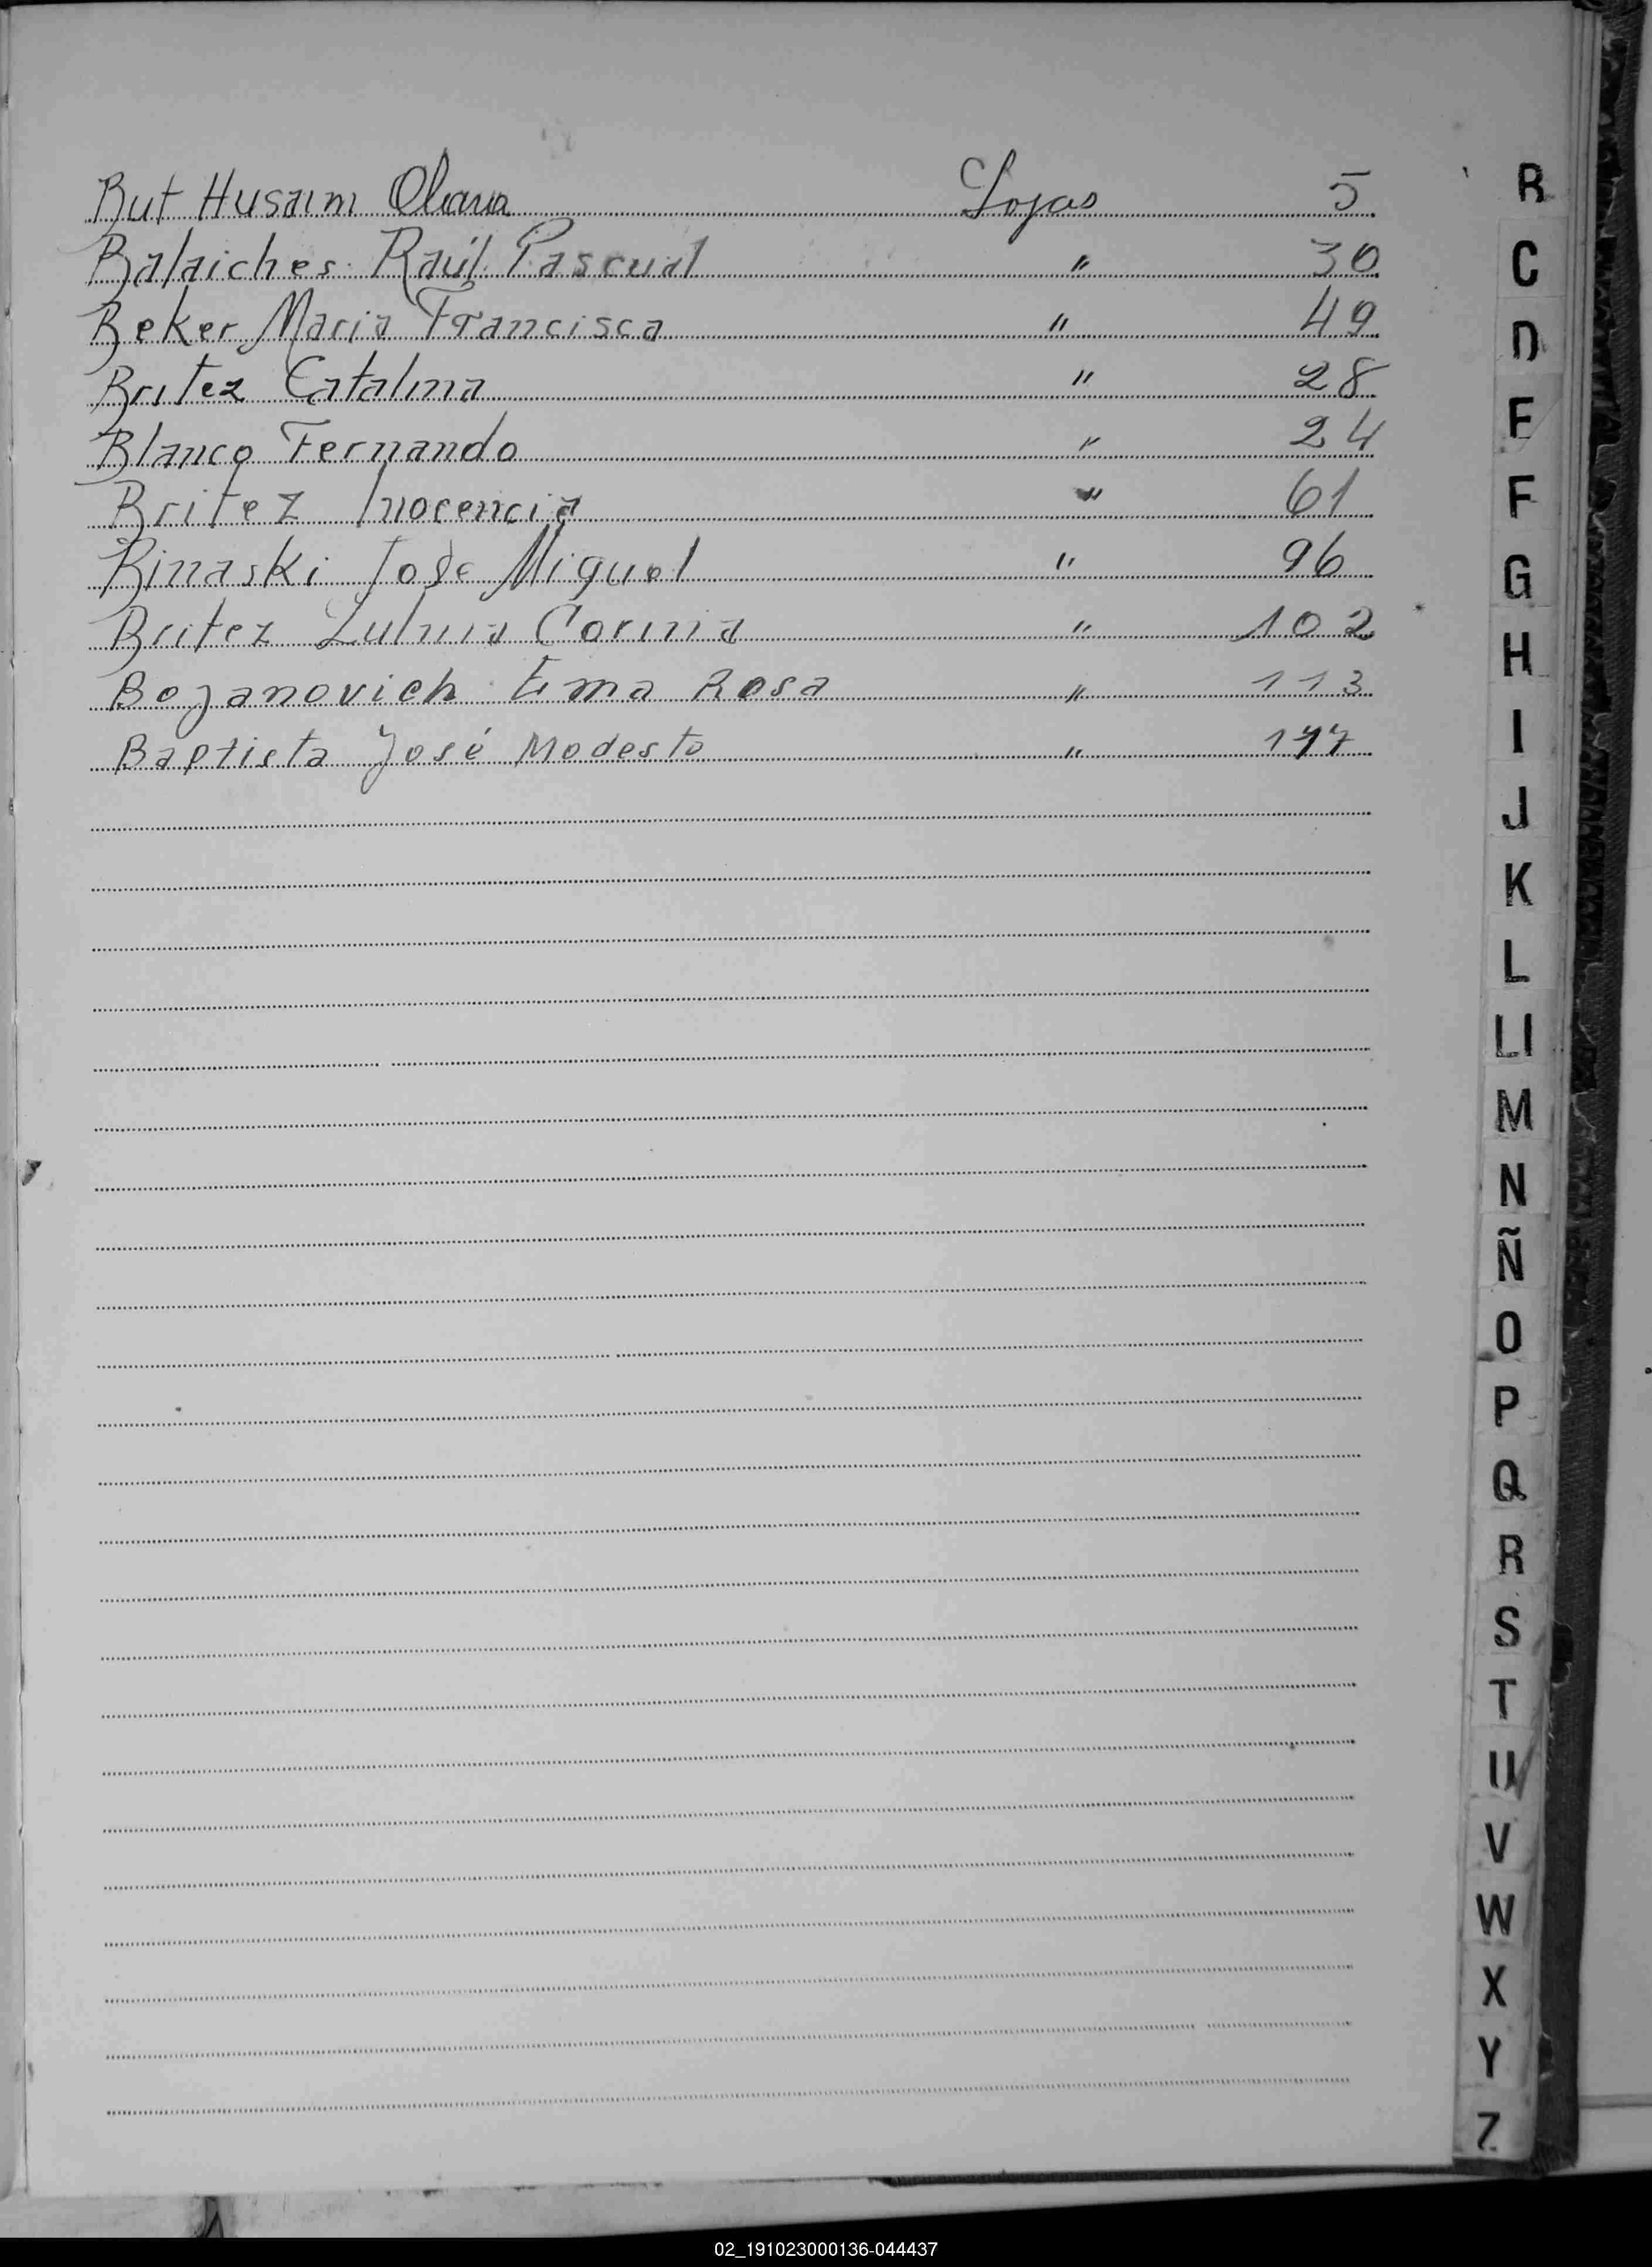 But Husaim " 5
Balaiches Raúl Pascual " 30
Beker Maria Francisca " 49
Britez Catalina " 28
Blanco Fernando " 24
Britez Inocencia " 61
Binaski Jose Miguel " 96
Britez Corina " 102
Bojanovich Ema Rosa " 113
Baptista José Modesto "
B
C
D
E
F
G
H
I
J
K
L
Ll
M
N
Ñ
O
P
Q
R
S
T
U
V
W
X
Y
Z
02_191023000136-044437